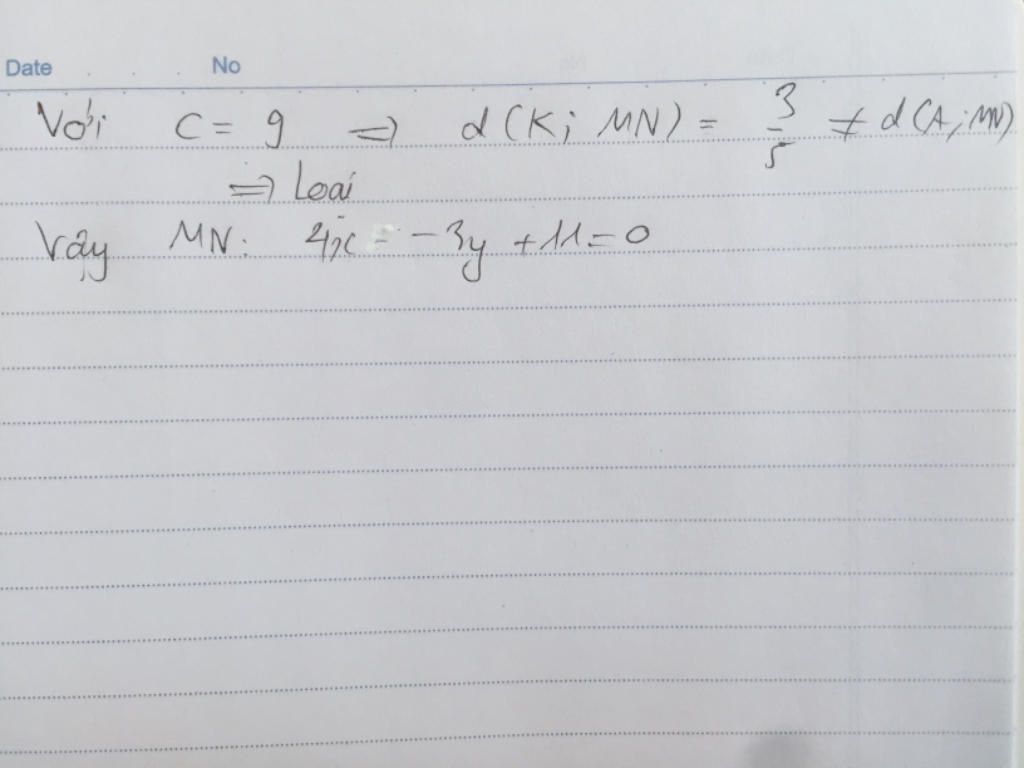 Date No
Với C = 9 => d(K; MN) = 3/5 ≠ d(A; MN)
=> Loại
Vậy MN: 4x - 3y + 11 = 0